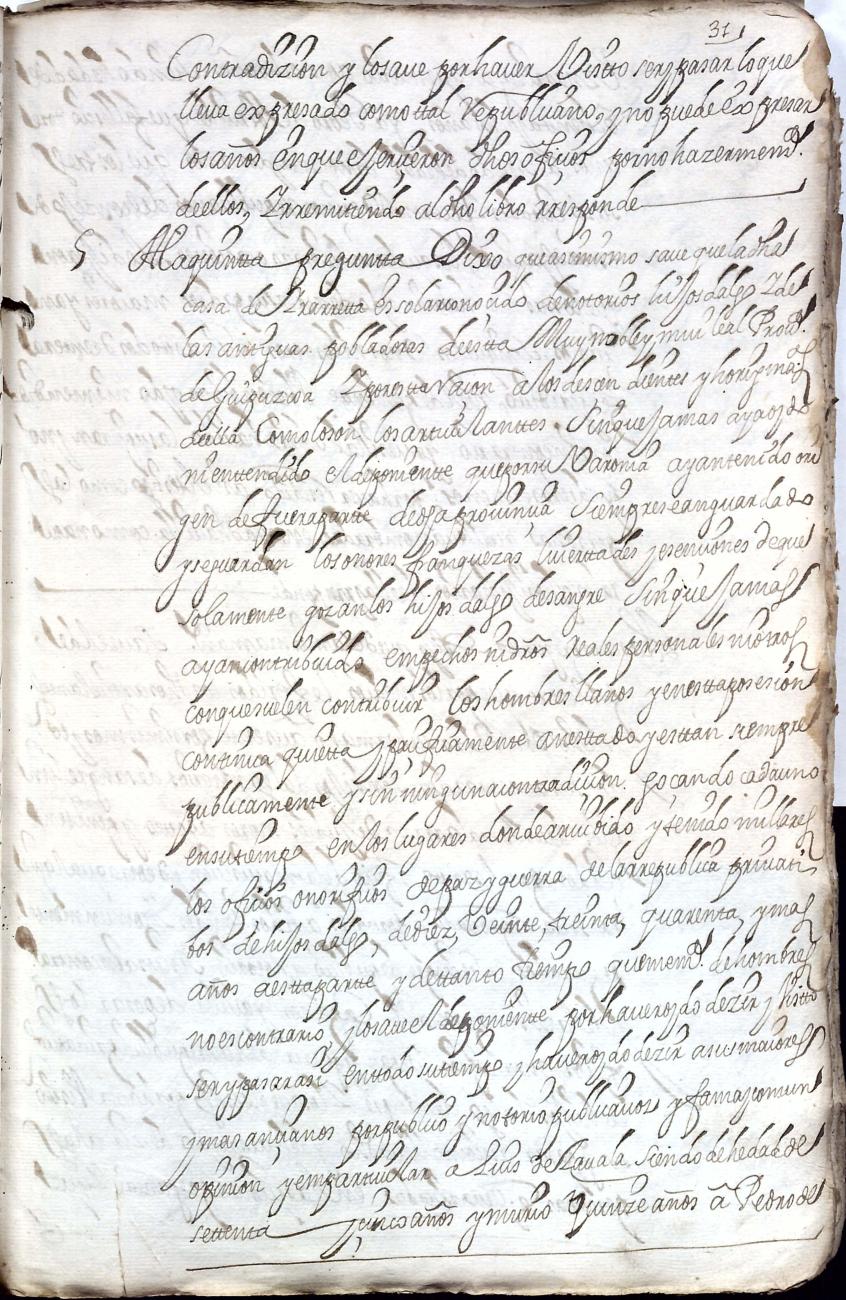 31
Contradizion y losave por haver Visto ser y pasar lo que
lleva expresado como tal Republicano, y no puede expresar
los años en que sirvieron dhos ofiçios por no hazer mem.ª
de ellos, y rremitiendo al dho libro rresponde
5 A la quintta preguntta Dixo que asimismo save que la dha
casa de Yrarretta es solar conocido de notorios hijos dalgo y de
las antiguas pobladoras de estta Muy noble y mui leal Prov.ª
de Guipuzcoa y por estta Racon a los descendientes y horiginas
de ella Como lo son los articulanttes sin que Jamas aya oydo
ni enttendido el deponiente que por su Varonia ayan tenido ori
gen de fuera partte de dha provincia siempre se an guardado
y se guardan los onores franquezas liverttades y esenciones de que
solamente gozan los hijos dalgo de sangre sin que Jamas
ayan contribuido en pechos ni drõs reales personales ni otros
con que suelen contribuir los hombres llanos y en estta posesion
continua quietta y pacificamente an esttado y esttan siempre
publicamente y sin ninguna contradicion gocando cada uno
en su tiempo en los lugares donde an vibido y tenido millares
los ofiçios onorificos de paz y guerra de la rrepublica privati
bos de hijos dalgo, de diez, Veinte, treinta, quarenta, y mas
años a estta partte y de ttanto tiempo que mem.ª de hombres
no es contrario, y lo save el deponiente por haver oydo dezir y visto
ser y pasar asi en todo su tiempo y haver oydo dezir a sus maiores
y mas ancianos por publico y notorio publica voz y fama y comun
opinion y em particular a Luis de Zavala siendo de hedad de
settenta y cinco años y murio quinze años a Pedro de